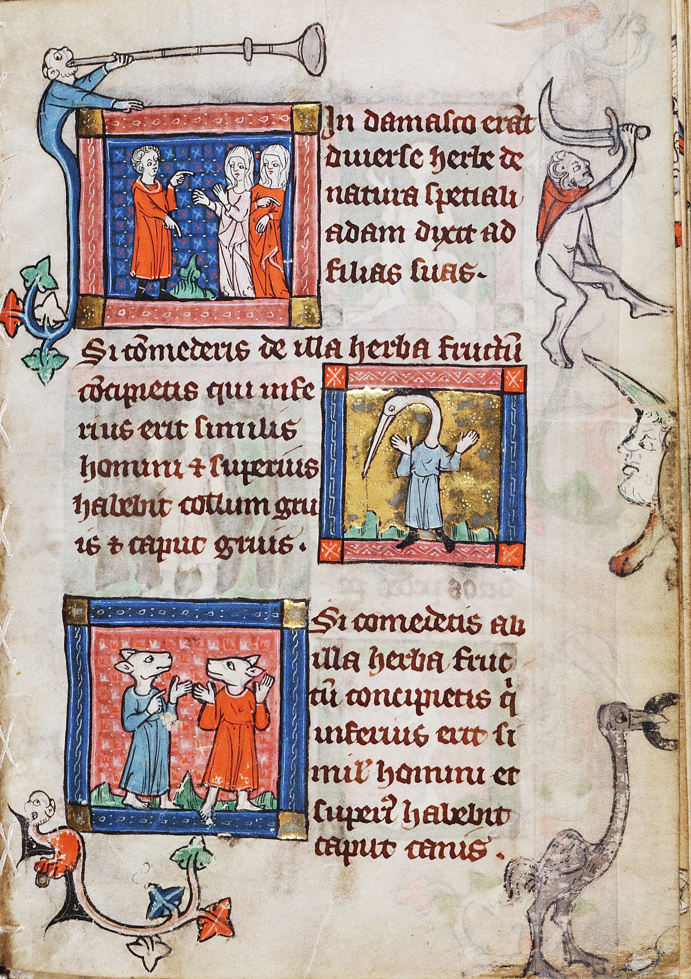 113
In damasco erāt
diuerse herbe de
natura speciali
adam dixit ad
filias suas.
Si cōmederis de illa herba fructū
cōcipietis qui infe
rius erit similis
homini ⁊ superius
habebit collum gru
is ⁊ caput gruis.
Si comedetis ab
illa herba fruc
tū concipietis qͥ
inferius erit si
mil' homini et
superꝰ habebit
caput canis.